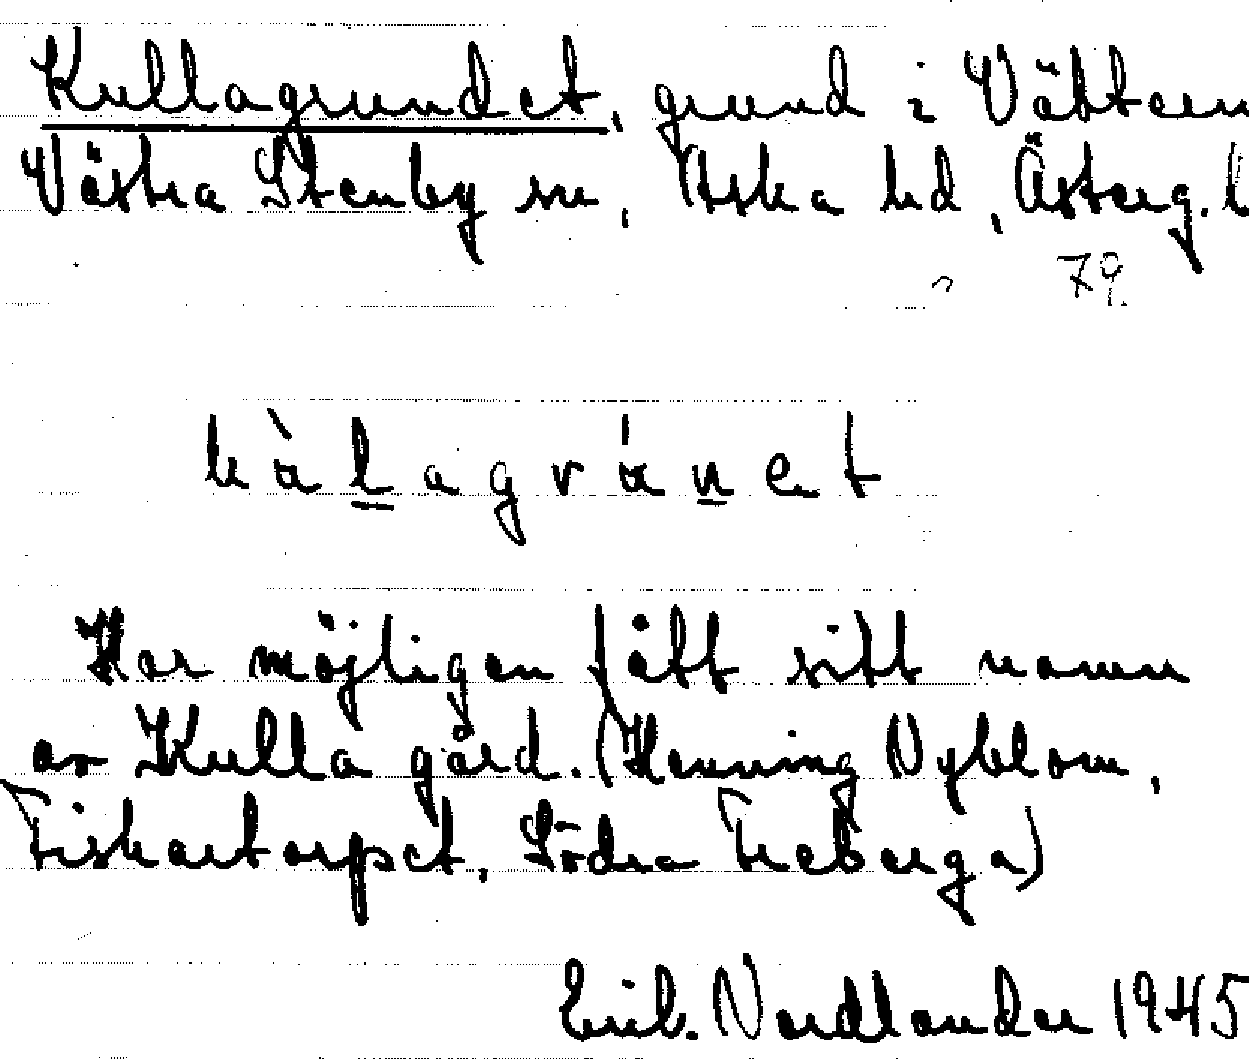 Kullagrundet, grund i Vättern
Västra Stenby sn, Aska hd, Österg. l
79.
kàlagránet
Har möjligen fått sitt namn
av Kulla gård. (Henning Nyblom,
Fiskartorpet, Södra Freberga)
Erik Nordlander 1945